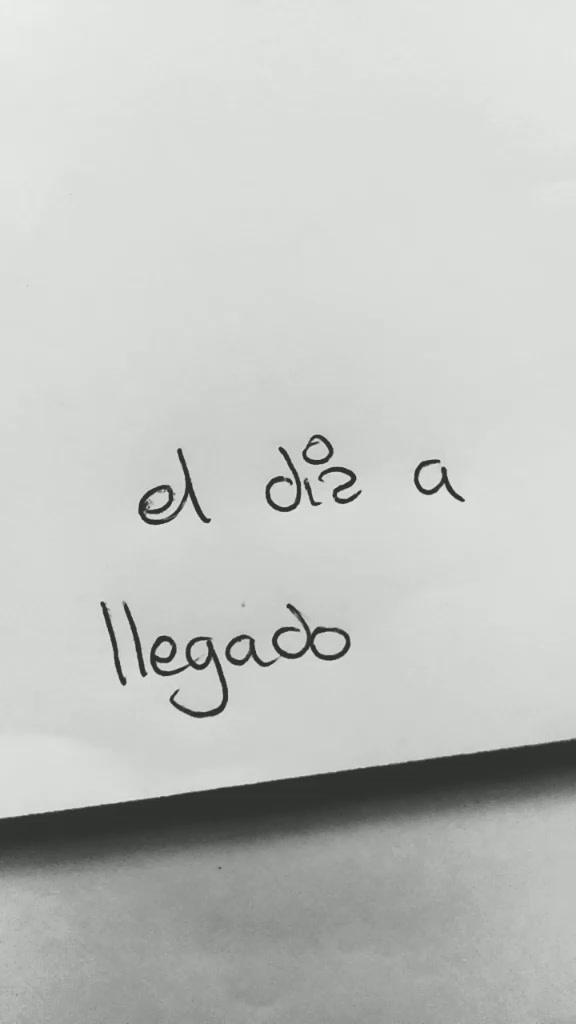 el dia a
llegado